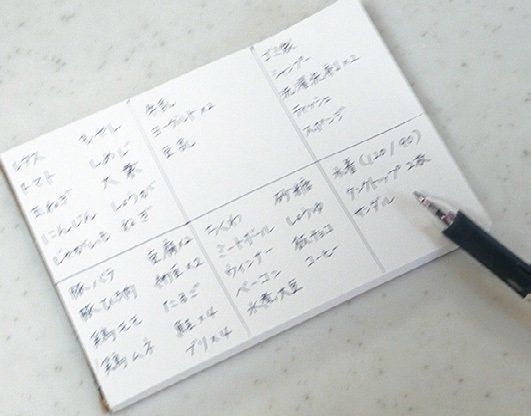 レタス
トマト
玉ねぎ
にんじん
じゃがいも
もやし
しめじ
大葉
しょうが
ねぎ
牛乳
ヨーグルト×2
豆乳
ゴミ袋
シャンプー
洗濯洗剤×2
ティッシュ
スポンジ
豚バラ
豚ひき肉
鶏モモ
鶏ムネ
豆腐×2
納豆×2
たまご
鮭×4
ブリ×4
ちくわ
ミートボール
ウィンナー
ベーコン
水煮大豆
砂糖
しょうゆ
板チョコ
コーヒー
水着(120/90)
タンクトップ 2枚
サンダル